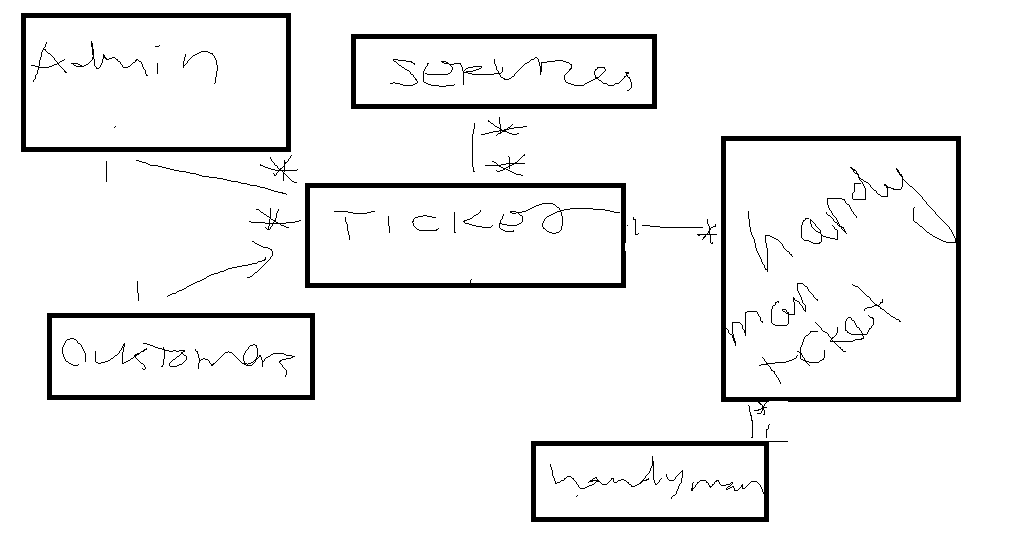 Admin
Services
1 *
*
*
*
Ticket
1 *
handy
man
ticket
1
Customers
*
1
handyman